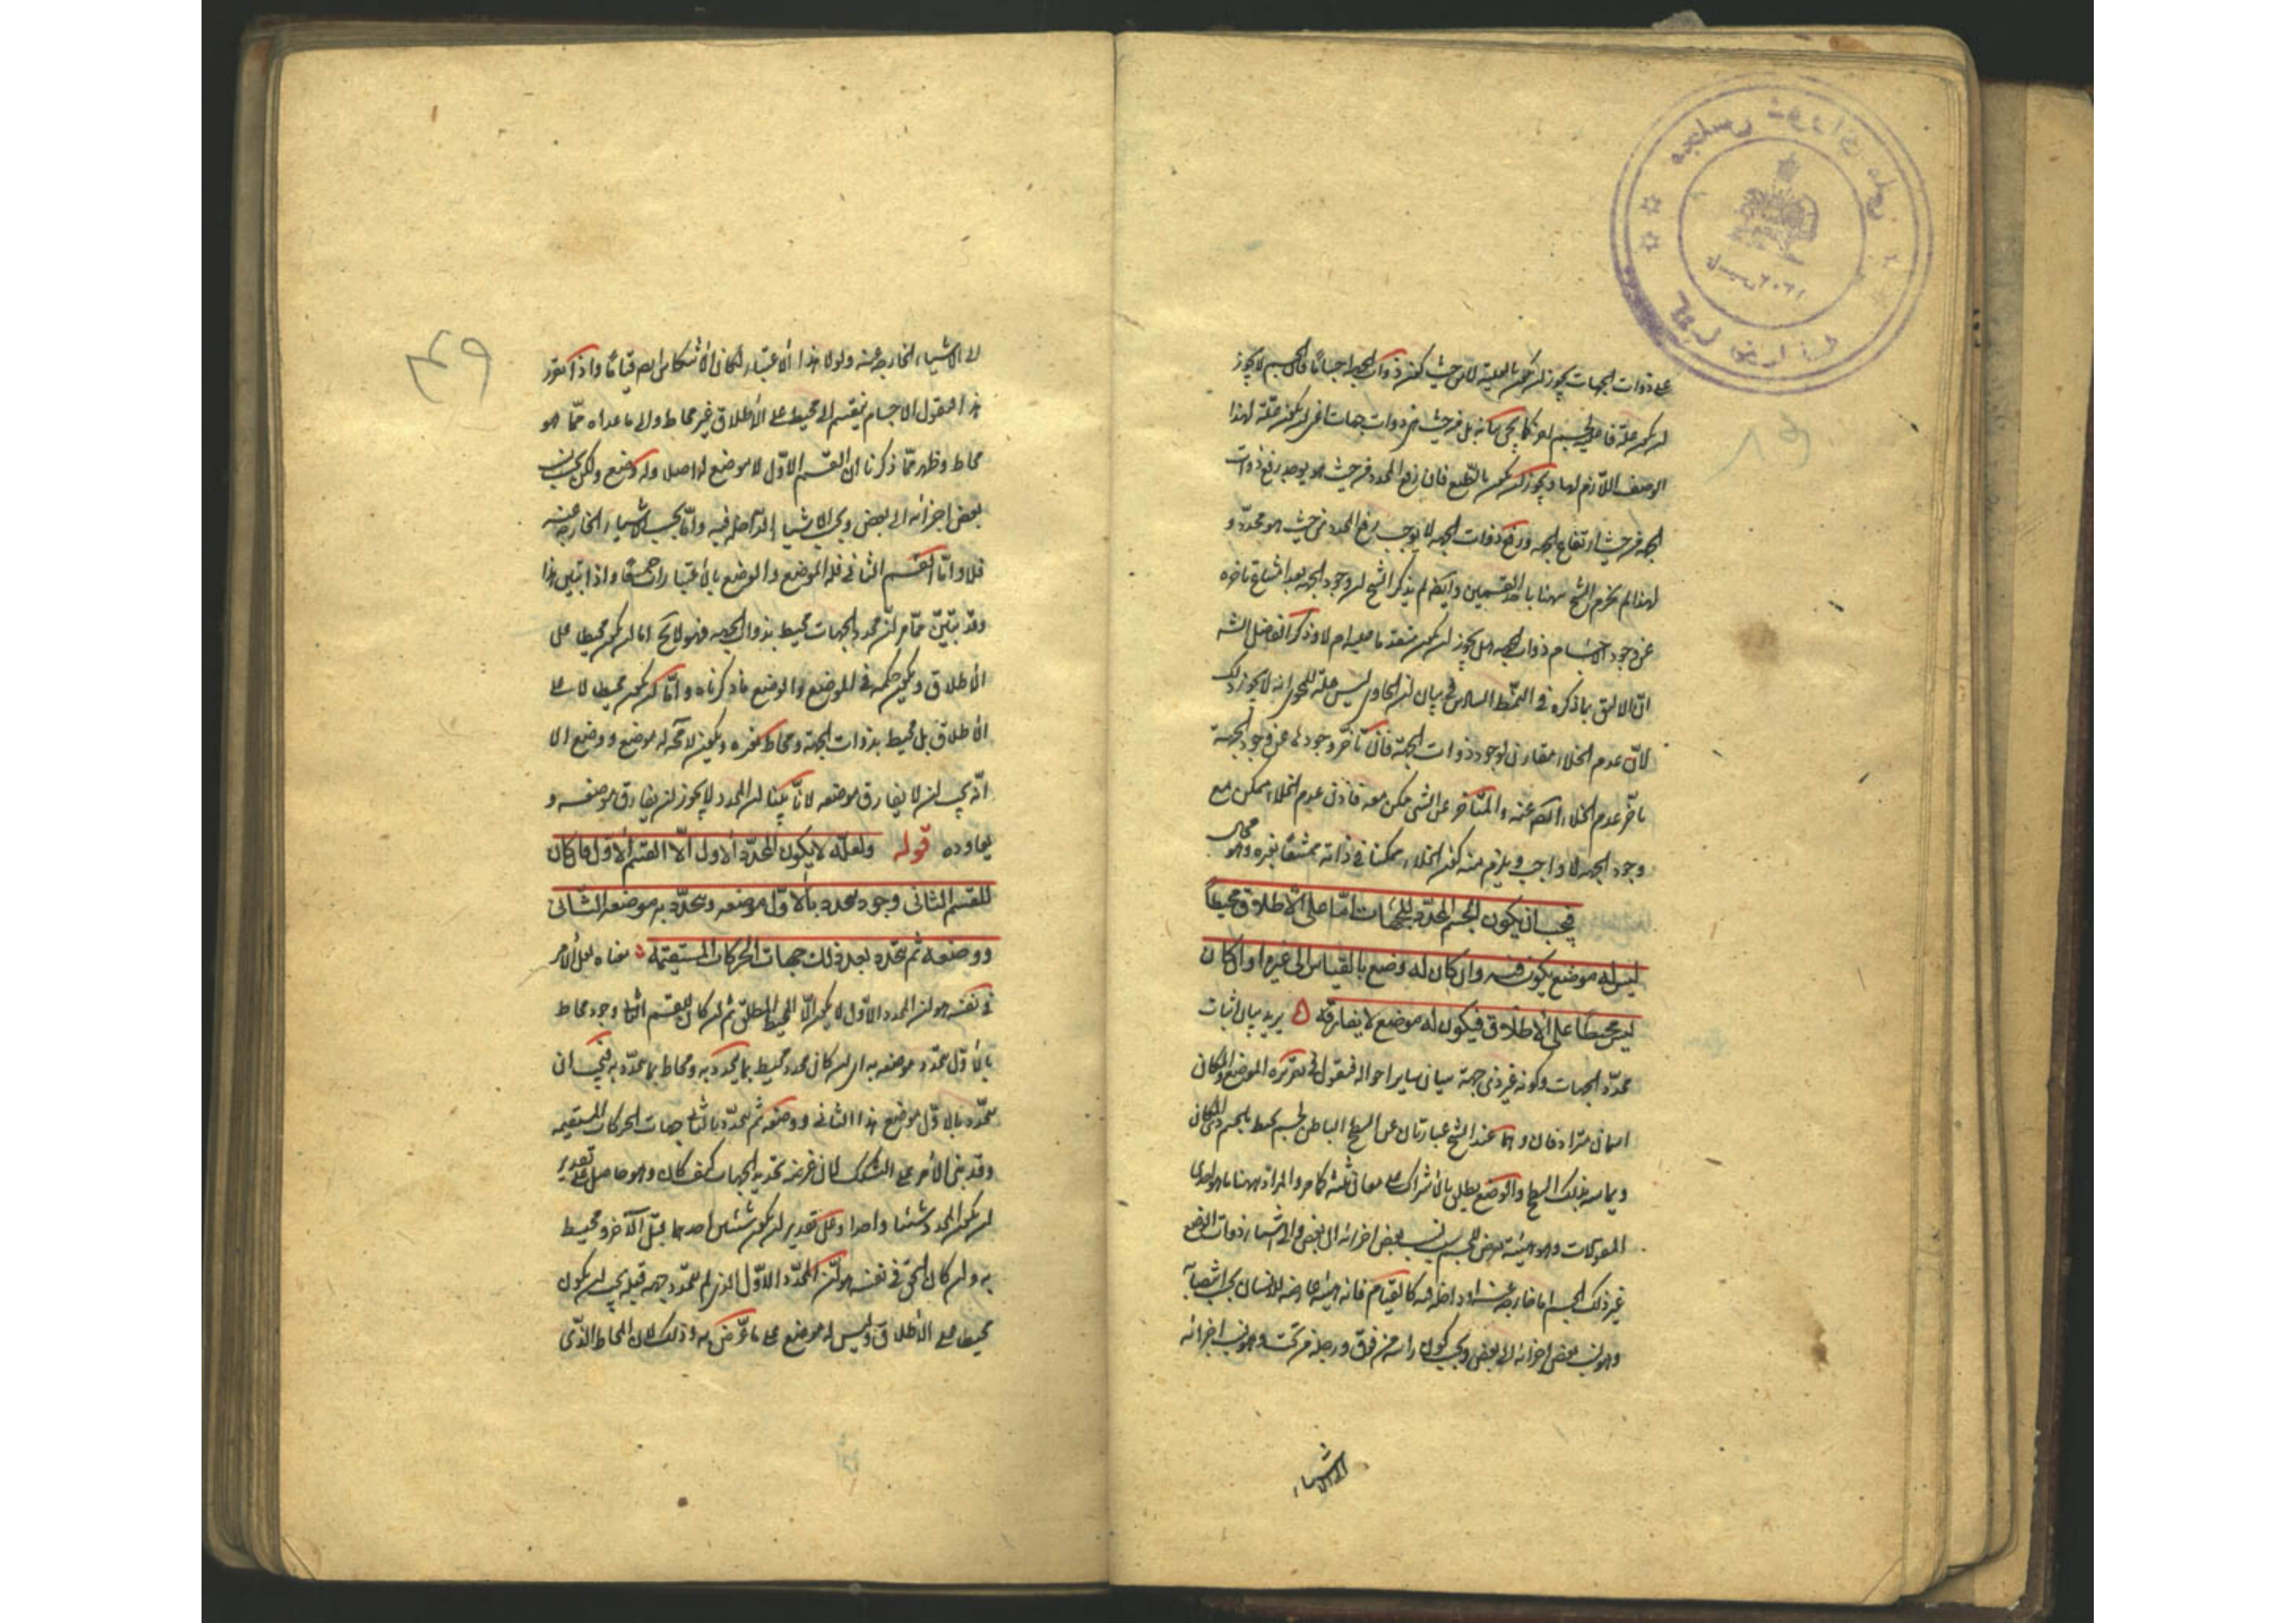 على ذوات الجهات يجوز ان يكون بالعلية لا من حيث كون ذوات الجهة اجساما فان الجسم لا يجوز
ان يكون علة فاعلية لجسم اخر كما يجئ بيانه بل من حيث هي ذوات جهات اي ان يكون علة لهذا
الوصف اللازم لها ويجوز ان يكون بالطبع فان رفع المحدد من حيث هو يوجب رفع ذوات
الجهة من حيث ارتفاع الجهة ورفع ذوات الجهة لا يوجب رفع المحدد من حيث هو محدد و
لهذا لم يجزم الشيخ ههنا باحد القسمين وايضا لم يذكر الشيخ ان وجود الجهة بعد امتناع تاخره
عن وجود الاجسام ذوات الجهة هل يجوز ان يكون متقدما عليه ام لا وذكر الفاضل الشه
ان الاليق بما ذكره في النمط السادس في بيان ان الحاوي ليس علة للمحوي انه لا يجوز ذلك
لان عدم الخلاء مقارن لوجود ذوات الجهة فان تاخر وجودها عن وجود الجهة
تاخر عدم الخلاء ايضا عنه والمتاخر عن الشي ممكن معه فاذن عدم الخلاء ممكن مع
وجود الجهة لا واجب ويلزم منه كون الخلاء ممكنا في ذاته ممتنعا بغيره وهو محال
فيجب ان يكون الجسم المحدد للجهات اما على الاطلاق محيطا
ليس له موضع يكون فيه وان كان له وضع بالقياس الى غيره او ان كان
ليس محيطا على الاطلاق فيكون له موضع لا يفارقه ه يريد بيان اثبات
محدد الجهات وكونه غير ذي جهة بيان ساير احواله فنقول في تقريره الموضع والمكان
اسمان مترادفان وهما عند الشيخ عبارتان عن السطح الباطن لجسم يحيط بالجسم ذي المكان
ويماسه بذلك السطح والوضع يطلق بالاشتراك على معان ثلثة كما مر والمراد ههنا ما هو احدى
المقولات وهو هيئة تعرض للجسم بسبب نسب بعض اجزائه الى بعض والى الاشياء ذوات الوضع
غير ذلك الجسم اما خارجة عنه او داخلة فيه كالقيام فانه هيئة عارضة للانسان بحسب انتصابه
وهو نسب بعض اجزائه الى بعض وبحسب كون راسه من فوق ورجله من تحت وهو نسب اجزائه
الى الاشياء
الى الاشياء الخارجة عنه ولولا هذا الاعتبار لكان الانتكاس ايضا قياما واذا تقرر
هذا فنقول الاجسام ينقسم الى محيط على الاطلاق غير محاط والى ما عداه مما هو
محاط وظهر مما ذكرنا ان القسم الاول لا موضع له اصلا وله وضع ولكن بحسب نسب
بعض اجزائه الى بعض وبحسب الاشيا الداخلة فيه واما بحسب الاشياء الخارجة عنه
فلا واما القسم الثاني فله الموضع والوضع بالاعتبارات جميعا واذا تبين هذا
وقد تبين مما مر ان محدد الجهات محيط بذوات الجهة فهو لا يخ اما ان يكون محيطا على
الاطلاق ويكون حكمه في الموضع والوضع ما ذكرناه واما ان يكون محيطا لا على
الاطلاق بل محيط بذوات الجهة ومحاط بغيره ويكون لا محه له موضع ووضع الا
انه يجب ان لا يفارق موضعه لانا بينا ان المحدد لا يجوز ان يفارق موضعه و
يعاوده قوله ولعله لا يكون المحدد الاول الا القسم الاول فان كان
للقسم الثاني وجود يتحدد بالاول موضعه ويتحدد به موضع الثاني
ووضعه ثم يتحدد بعد ذلك جهات الحركات المستقيمة ه معناه لعل الامر
في نفسه هو ان المحدد الاول لا يكون الا المحيط المطلق ثم ان كان للقسم الثاني وجود محاط
بالاول يتحدد موضعه به اي ان كان محدد محيط بما يحدد به ومحاط بما يتحدد به فيجب ان
يتحدد بالاول موضع هذا الثاني ووضعه ثم يتحدد بالثاني جهات الحركات المستقيمة
وقد بنى الامر على التشكك لان غرضه تحديد الجهات كيف كان وهو حاصل على تقدير
ان يكون المحدد شيئا واحدا وعلى تقدير ان يكون شيئين احدهما قبل الاخر ومحيط
به وان كان الحق في نفسه هو ان المحدد الاول الذي لم يتحدد جهة قبله يجب ان يكون
محيطا على الاطلاق وليس له موضع على ما عرض به وذلك لان المحاط الذي